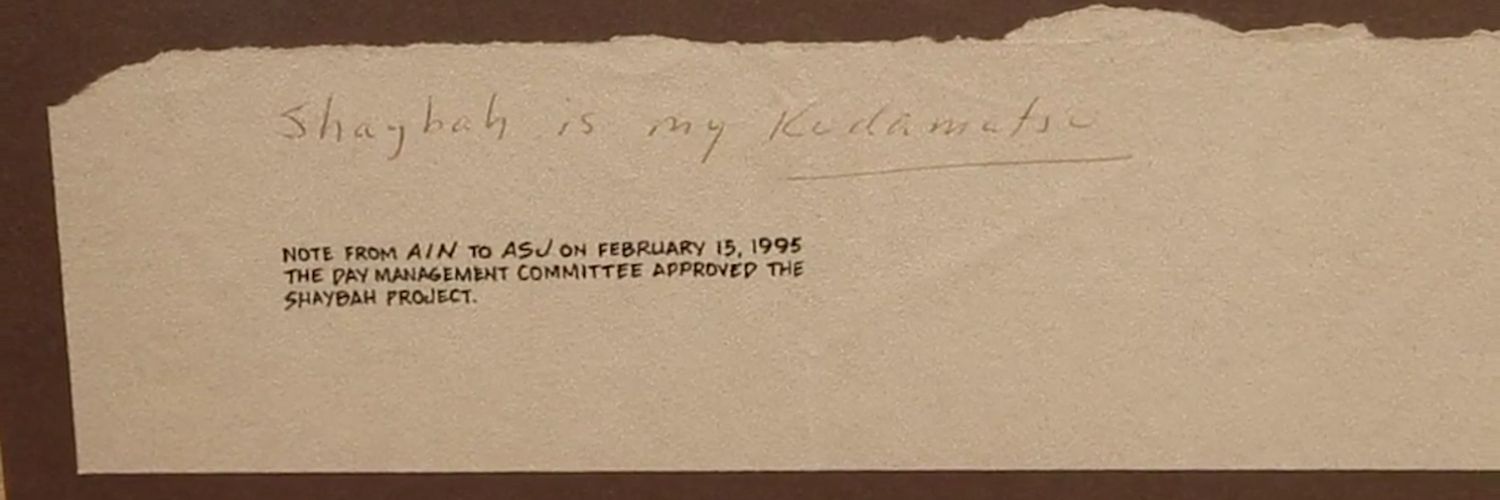 Shaybah is my Kudamatsu
NOTE FROM AIN TO ASJ ON FEBRUARY 15, 1995
THE DAY MANAGEMENT COMMITTEE APPROVED THE
SHAYBAH PROJECT.